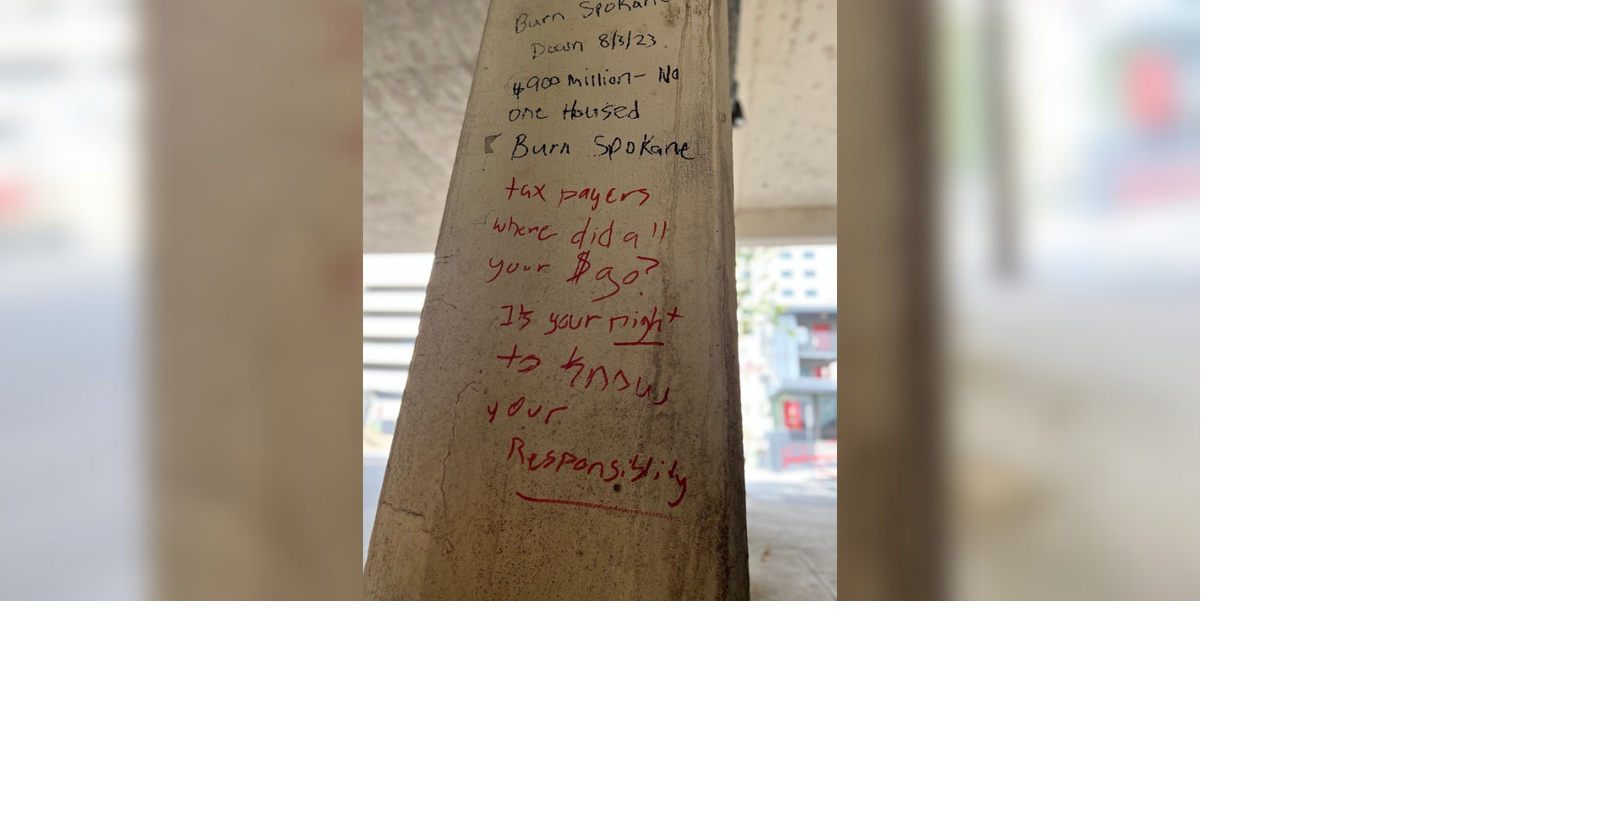 Burn Spokane
Down 8/3/23
$900 million- No
one Housed
Burn Spokane
tax payers
where did all
your $ go?
It's your right
to know
your
Responsiblity